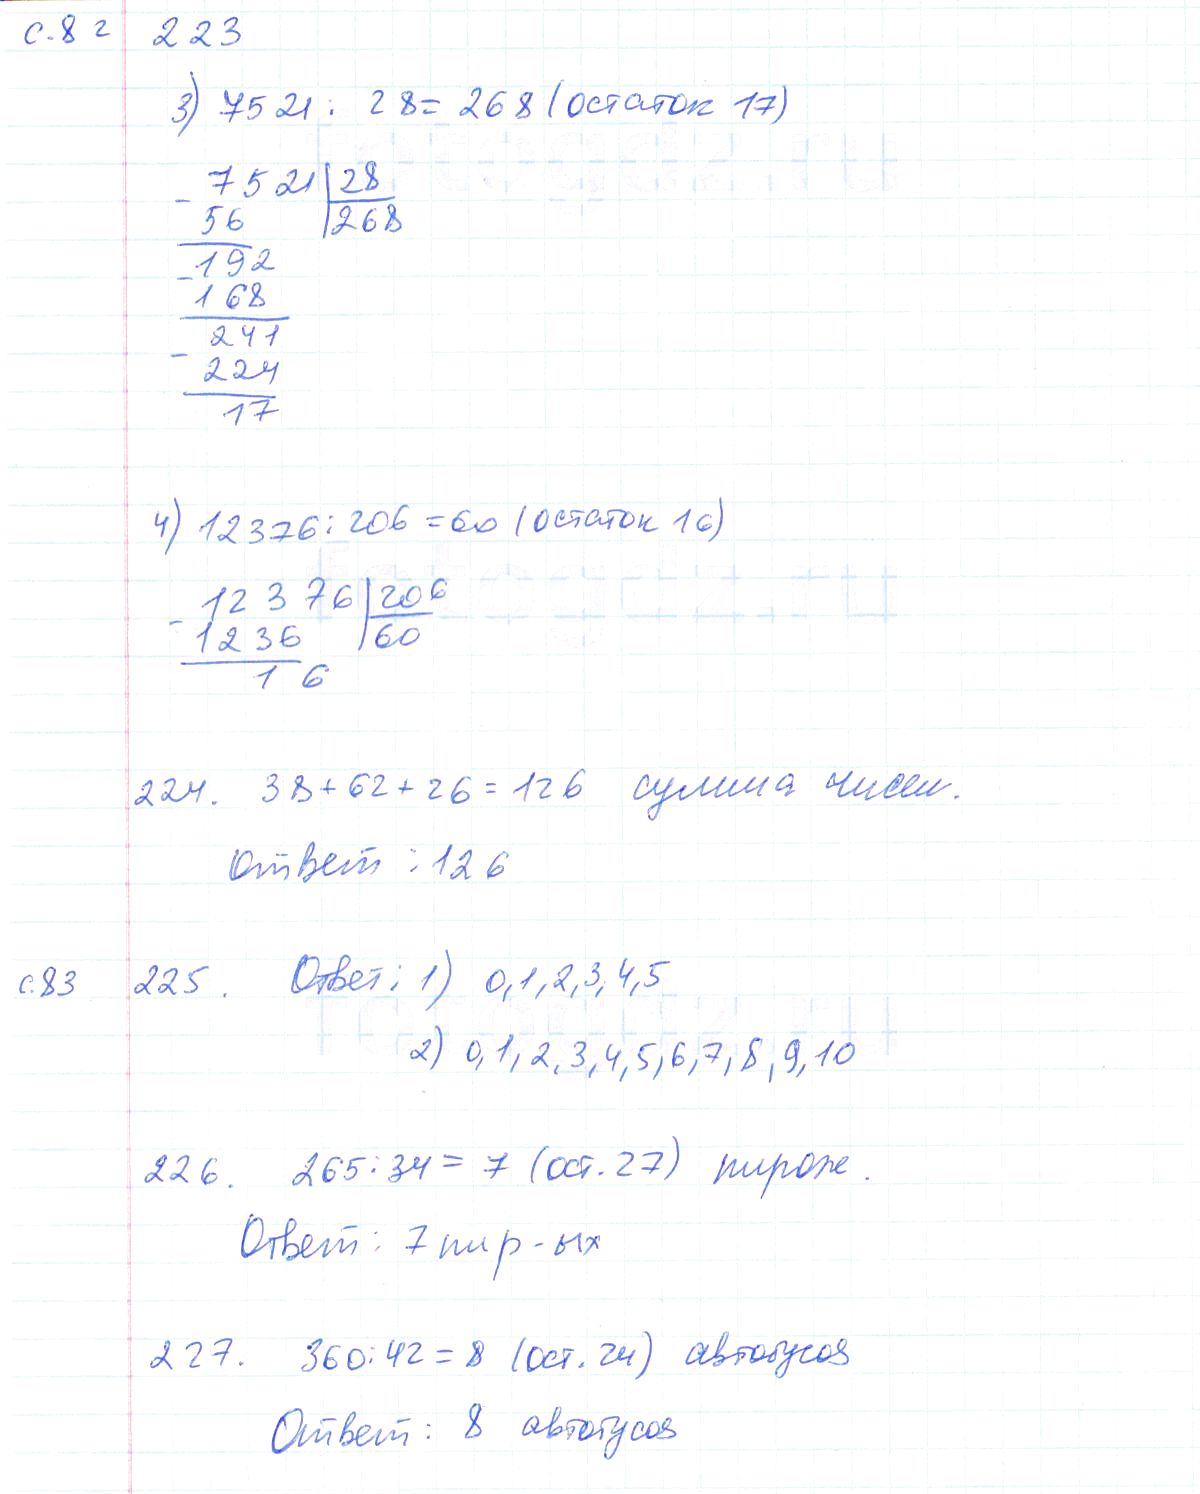 с.82 223
3) 7521 : 28 = 268 (остаток 17)
- 7521 | 28
56 | 268
- 192
168
- 241
224
17
4) 12376 : 206 = 60 (остаток 16)
- 12376 | 206
1236 | 60
16
224. 38 + 62 + 26 = 126 сумма чисел.
Ответ : 126
с.83 225. Ответ: 1) 0,1,2,3,4,5
2) 0,1,2,3,4,5,6,7,8,9,10
226. 265 : 34 = 7 (ост. 27) пирож.
Ответ: 7 пир-ых
227. 360 : 42 = 8 (ост. 24) автобусов
Ответ: 8 автобусов